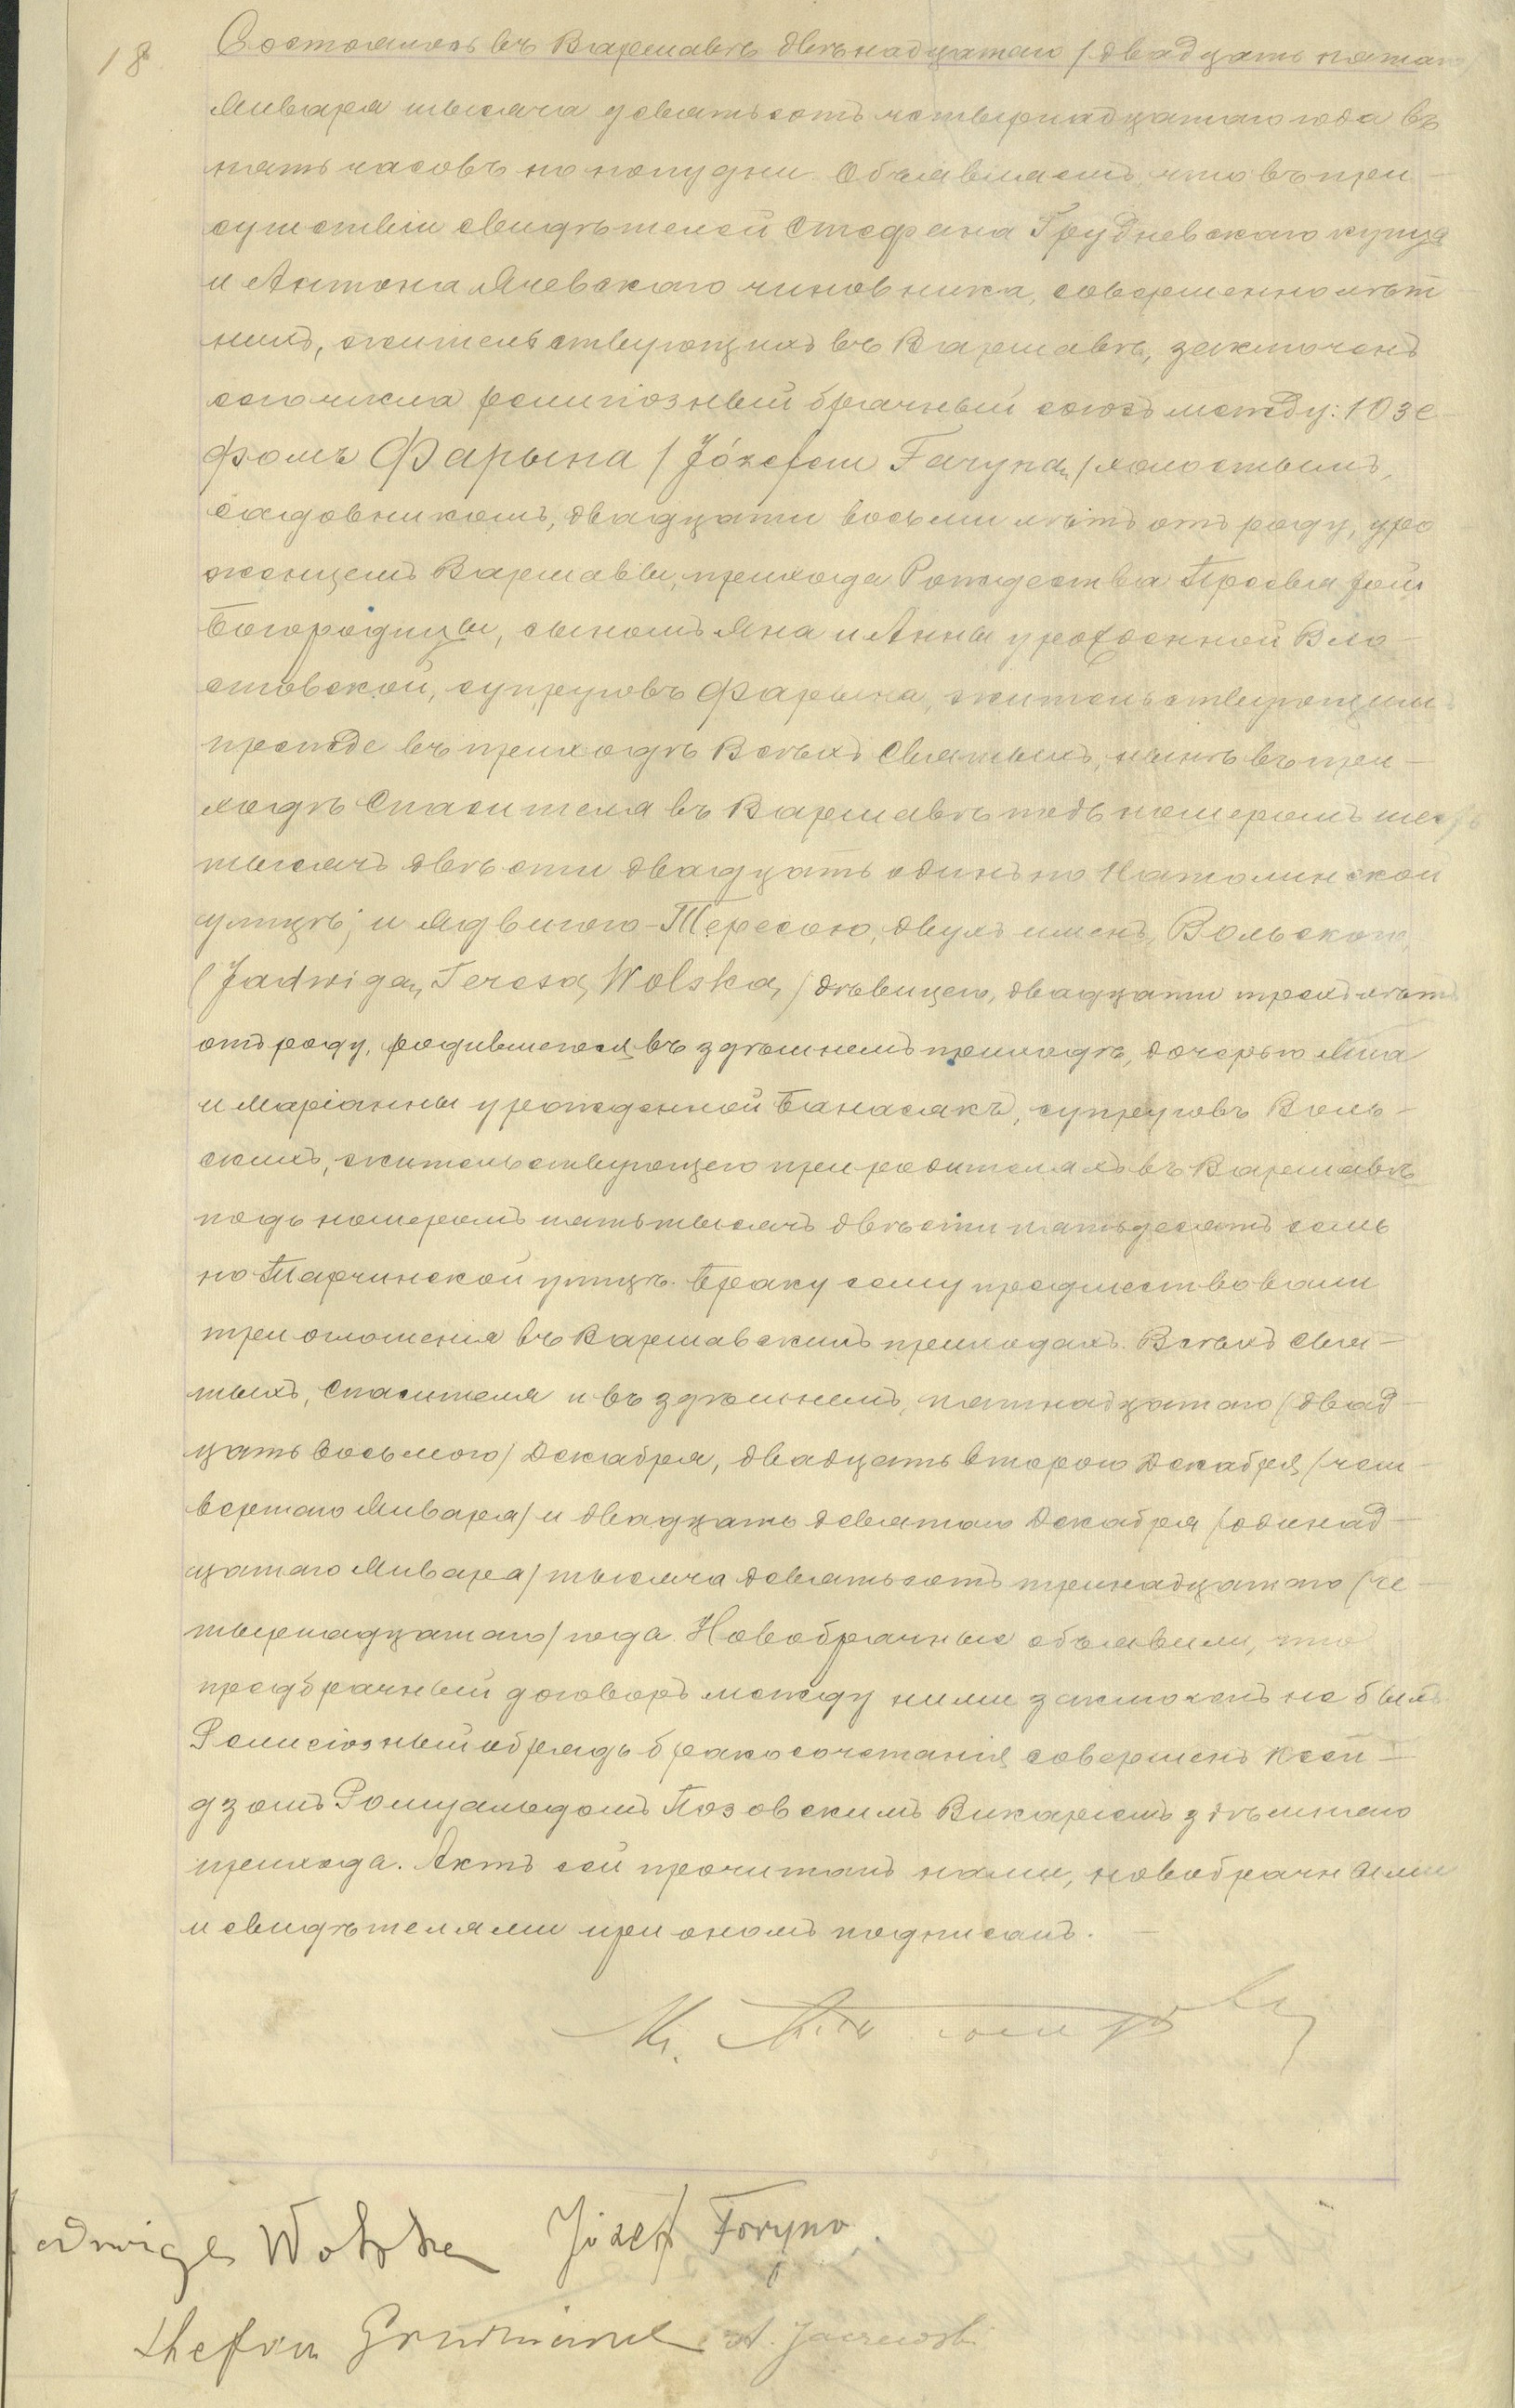 18
Состоялось въ Варшавѣ двѣнадцатаго /двадцать пятаго/
Января тысяча девятьсотъ четырнадцатаго года въ
пять часовъ по полудни. Объявляемъ, что въ при-
сутствіи свидѣтелей Стефана Грудневскаго купца
и Антона Ячевскаго чиновника, совершеннолѣт
нихъ, жительствующихъ въ Варшавѣ, заключенъ
сего числа религіозный брачный союзъ между: Іозе-
фомъ Фарына /Józefem Faryną/ холостымъ,
садовникомъ, двадцати восьми лѣтъ отъ роду, уро
женцемъ Варшавы, прихода Рождества Пресвятой
Богородицы, сыномъ Яна и Анны урожденной Вло-
стовской, супруговъ Фарына, жительствующимъ
прежде въ приходѣ Всѣхъ Святыхъ, нынѣ въ при-
ходѣ Спасителя въ Варшавѣ подъ номеромъ шесть
тысячъ двѣсти двадцать одинъ по Натолинской
улицѣ; и Ядвигою-Тересою, двухъ именъ, Вольскою,
/Jadwigą Teresą Wolską/ дѣвицею, двадцати трехъ лѣтъ
отъ роду, родившеюся въ здѣшнемъ приходѣ, дочерью Яна
и Маріанны урожденной Банасякъ, супруговъ Воль-
скихъ, жительствующею при родителяхъ въ Варшавѣ
подъ номеромъ пять тысячъ двѣсти пятьдесятъ семь
по Тарчинской улицѣ. Браку сему предшествовали
три оглашенія въ Варшавскихъ приходахъ Всѣхъ Свя-
тыхъ, Спасителя и въ здѣшнемъ, пятнадцатаго /двад-
цать восьмого/ Декабря, двадцать второго Декабря /чет-
вертаго Января/ и двадцать девятаго Декабря /одинад-
цатаго Января/ тысяча девятьсотъ тринадцатаго /че-
тырнадцатаго/ года. Новобрачные объявили, что
предбрачный договоръ между ними заключенъ не былъ.
Религіозный обрядъ бракосочетанія совершенъ Ксен-
дзомъ Ромуальдомъ Позовскимъ Викаріемъ здѣшняго
прихода. Актъ сей прочитанъ нами, новобрачными
и свидѣтелями при ономъ подписанъ.
Jadwiga Wolska Józef Faryna
A. Jaczewski